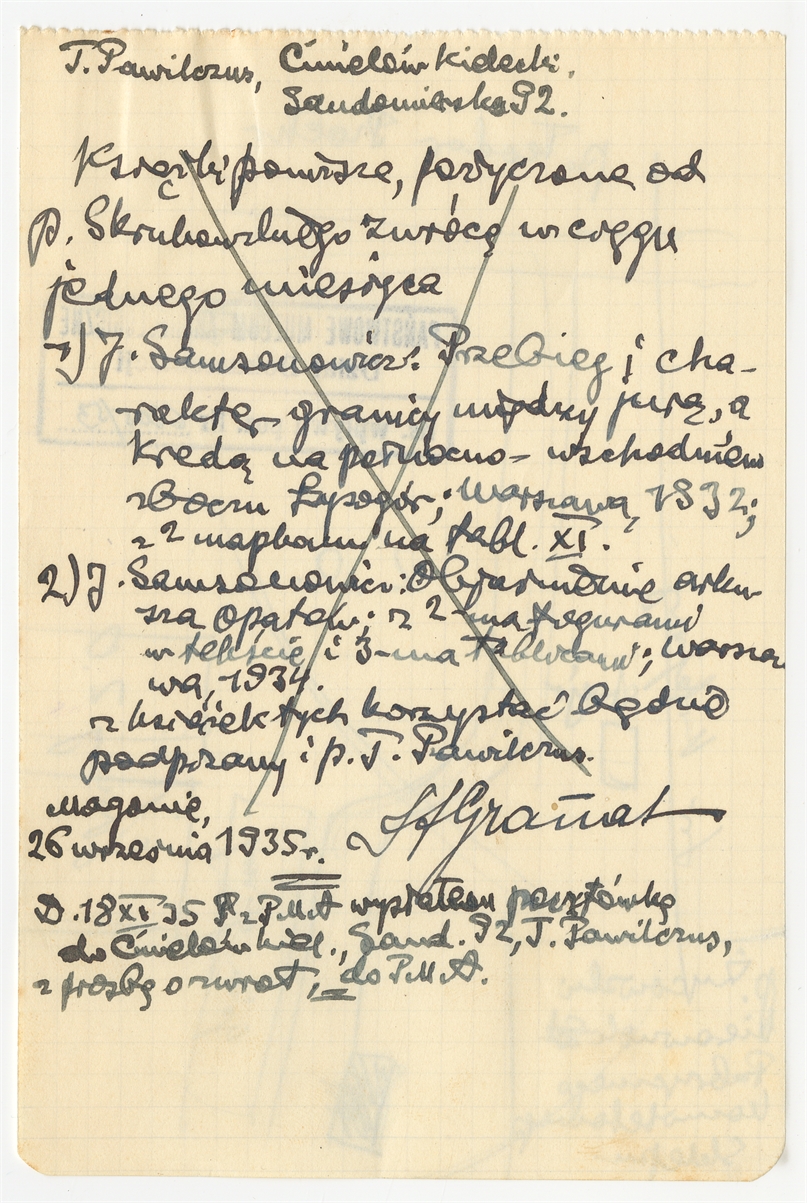 T. Pawilczus, Ćmielów kielecki,
Sandomierska 92.
Książki poniższe, pożyczone od
p. Skrukowskiego zwrócę w ciągu
jednego miesiąca
1) J. Samsonowicz: Przebieg i cha-
rakter granicy między jurą, a
kredą na północno-wschodniem
zboczu Łysogór; Warszawa, 1932;
z 2 mapkami na tabl. XI.
2) J. Samsonowicz: Objaśnienie arku-
sza Opatów; z 2-ma figurami
w tekście i 3-ma tablicami; Warsza-
wa, 1934.
z książek tych korzystać będzie
podpisany i p. T. Pawilczus.
Magonie,
26 września 1935 r.
Granat
D. 18 XI 35 z PMA wysłałem pocztówkę
do Ćmielów kiel., Sand. 92, T. Pawilczus,
z prośbą o zwrot, do P.M.A.